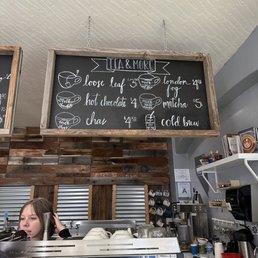 TEA & MORE
loose leaf 5
london fog
hot chocolate 4
matcha 5
chai 4
cold brew